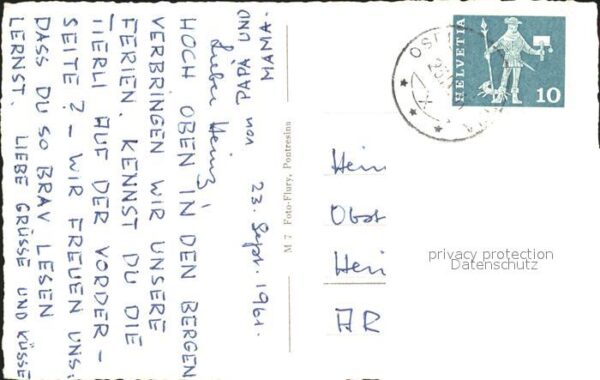 23. Sept. 1961.
Lieber Heini!
HOCH OBEN IN DEN BERGEN
VERBRINGEN WIR UNSERE
FERIEN. KENNST DU DIE
TIERLI AUF DER VORDER-
SEITE? - WIR FREUEN UNS,
DASS DU SO BRAV LESEN
LERNST. LIEBE GRÜSSE UND KÜSSE
von PAPA UND
MAMA.
M 7 Foto-Flury, Pontresina
HELVETIA
10
Hein
Obst
Heri
AR
privacy protection
Datenschutz